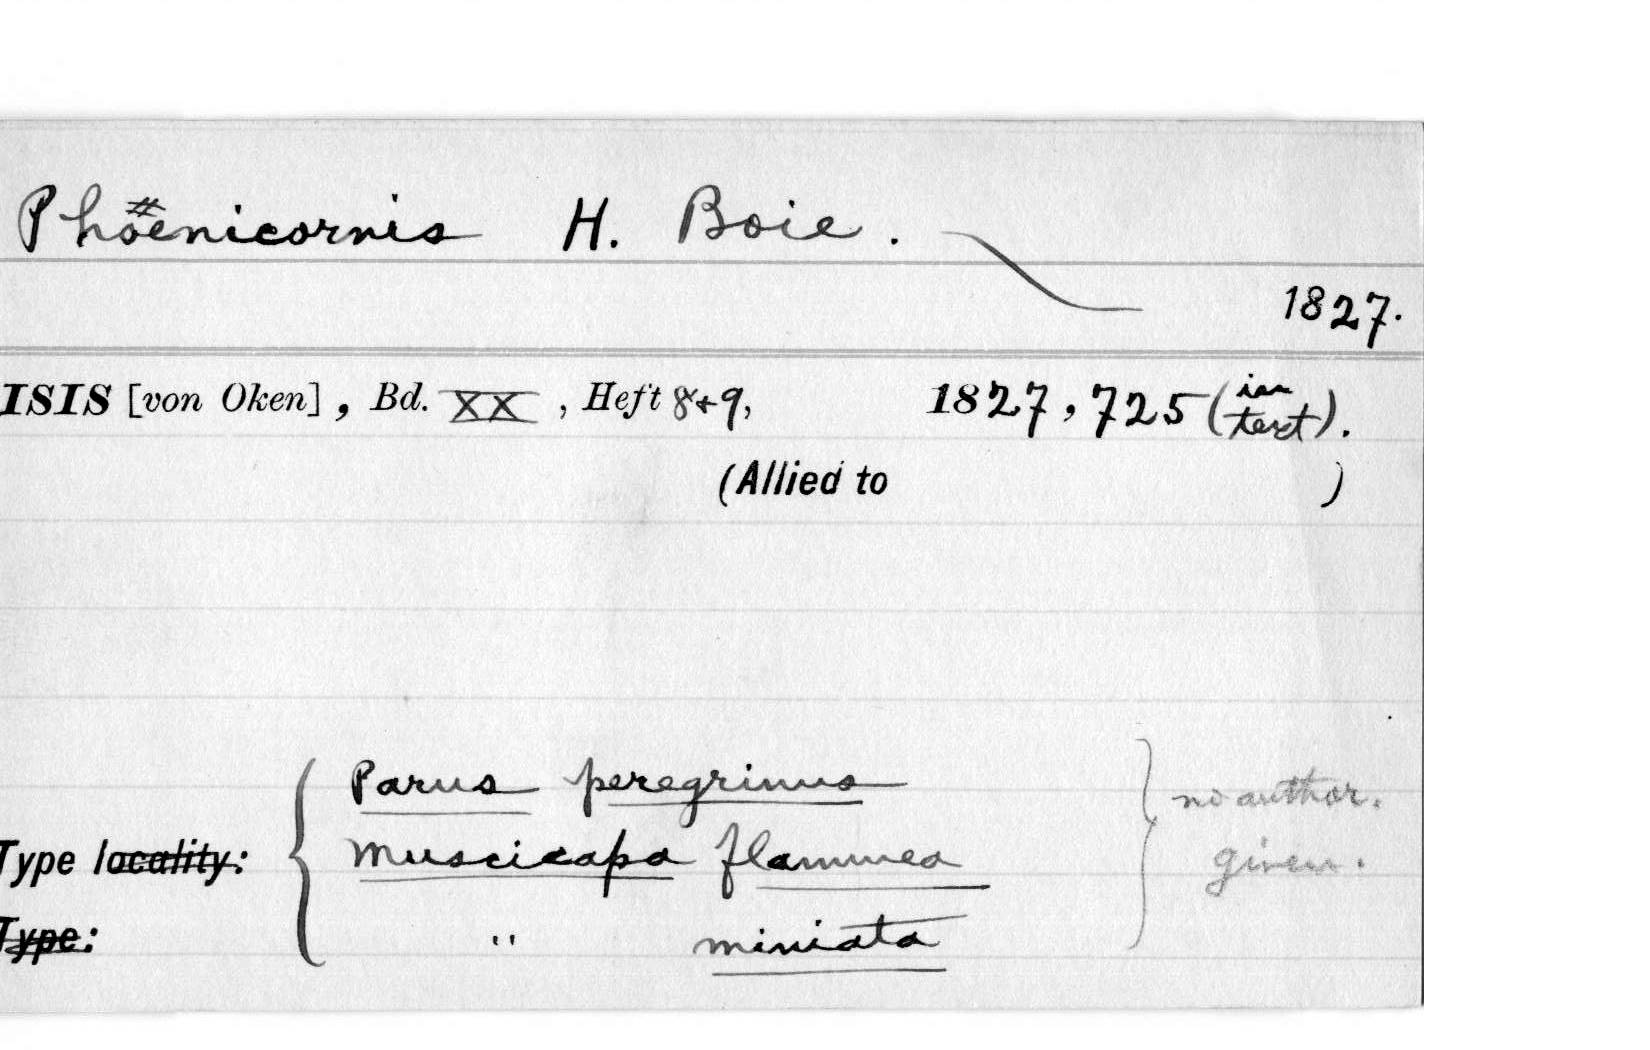 Phoenicornis H. Boie.
1827.
ISIS [von Oken], Bd. XX, Heft 8+9, 1827, 725 (in text).
(Allied to )
Parus peregrinus
no author.
Type locality: Muscicapa flammea
given.
Type: " miniata